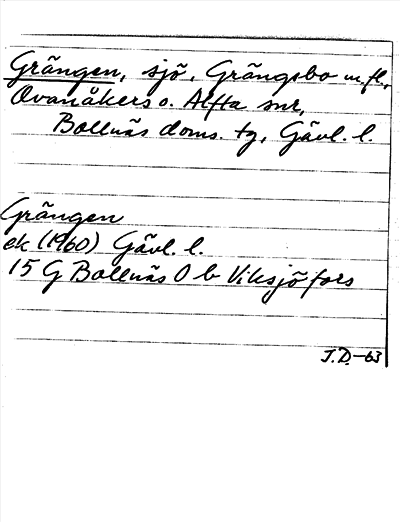 Grängen, sjö, Grängsbo m.fl.,
Ovanåkers o. Alfta snr,
Bollnäs doms. tg, Gävl. l.
Grängen
ek (1960) Gävl. l.
15 G Bollnäs O b Viksjöfors
J.D.-63